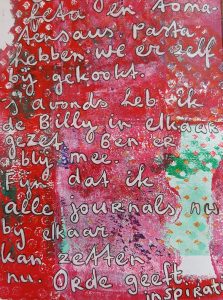 feta en toma
tensaus. Pasta
hebben we er zelf
bij gekookt.
's avonds heb ik
de Billy in elkaar
gezet. Ben er
blij mee.
Fijn dat ik
alle journals nu
bij elkaar
kan zetten
nu. Orde geeft
inspirat